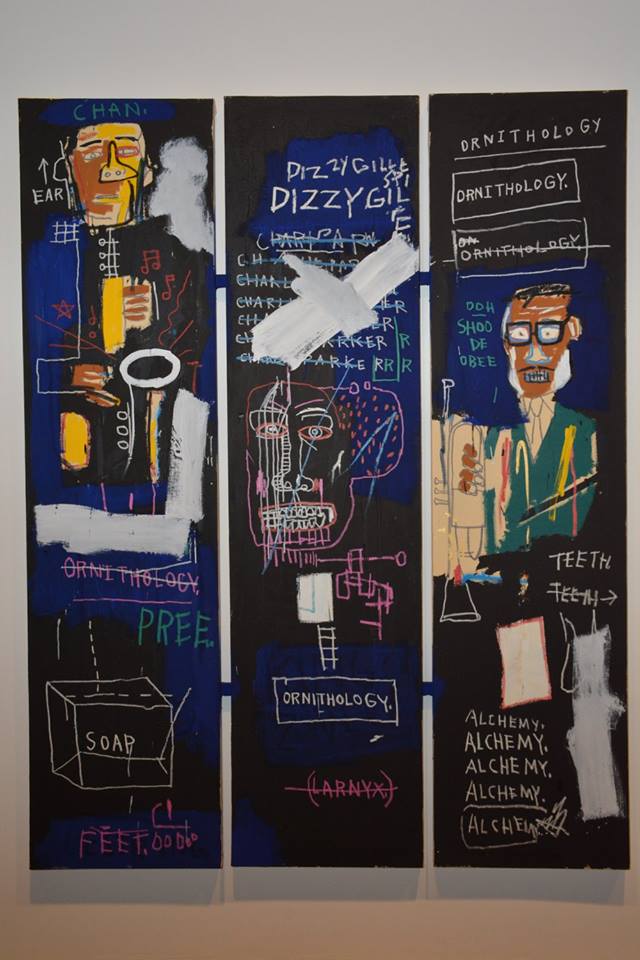 CHAN.
EAR
ORNITHOLOGY.
PREE.
SOAP
FEET.
DIZZYGILLE
SPI
DIZZYGIL
E
CHARLES PARKER
CHARL
CHARL
CHARLI ER
ER R
CHARLES PARKER R
CHARLES PARKERRR R
ORNITHOLOGY.
(LARNYX)
ORNITHOLOGY
ORNITHOLOGY.
ORNITHOLOGY.
OOH
SHOO
DE
OBEE
TEETH.
TEETH→
ALCHEMY.
ALCHEMY.
ALCHEMY.
ALCHEMY.
ALCHEM